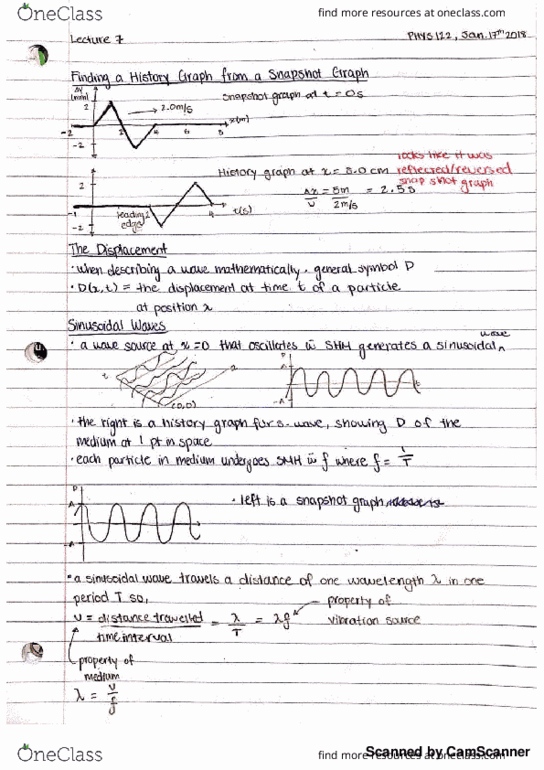 OneClass
find more resources at oneclass.com
Lecture 7
PHYS 122, Jan. 17th 2018
Finding a History Graph from a Snapshot Graph
Δy
(mm)
snapshot graph at t = 0s
→ 2.0m/s
2
-2
-2
2
6
8
x(m)
History graph at x = 8.0 cm
looks like it was
reflected/reversed
snap shot graph
Δx/v = 5m/2m/s = 2.5s
2
-1
-2
leading
edge
4
t(s)
The Displacement
· when describing a wave mathematically, general symbol D
· D(x,t) = the displacement at time t of a particle
at position x
Sinusoidal Waves
· a wave source at x=0 that oscillates w SHM generates a sinusoidal wave
t
x
(0,0)
D
A
-A
t
· the right is a history graph for a wave, showing D of the
medium at 1 pt in space
· each particle in medium undergoes SHM w f where f = 1/T
D
A
-A
· left is a snapshot graph
· a sinusoidal wave travels a distance of one wavelength λ in one
period T so,
v = distance travelled/time interval = λ/T = λf
property of
vibration source
property of
medium
λ = v/f
OneClass
find more resources at oneclass.com
Scanned by CamScanner